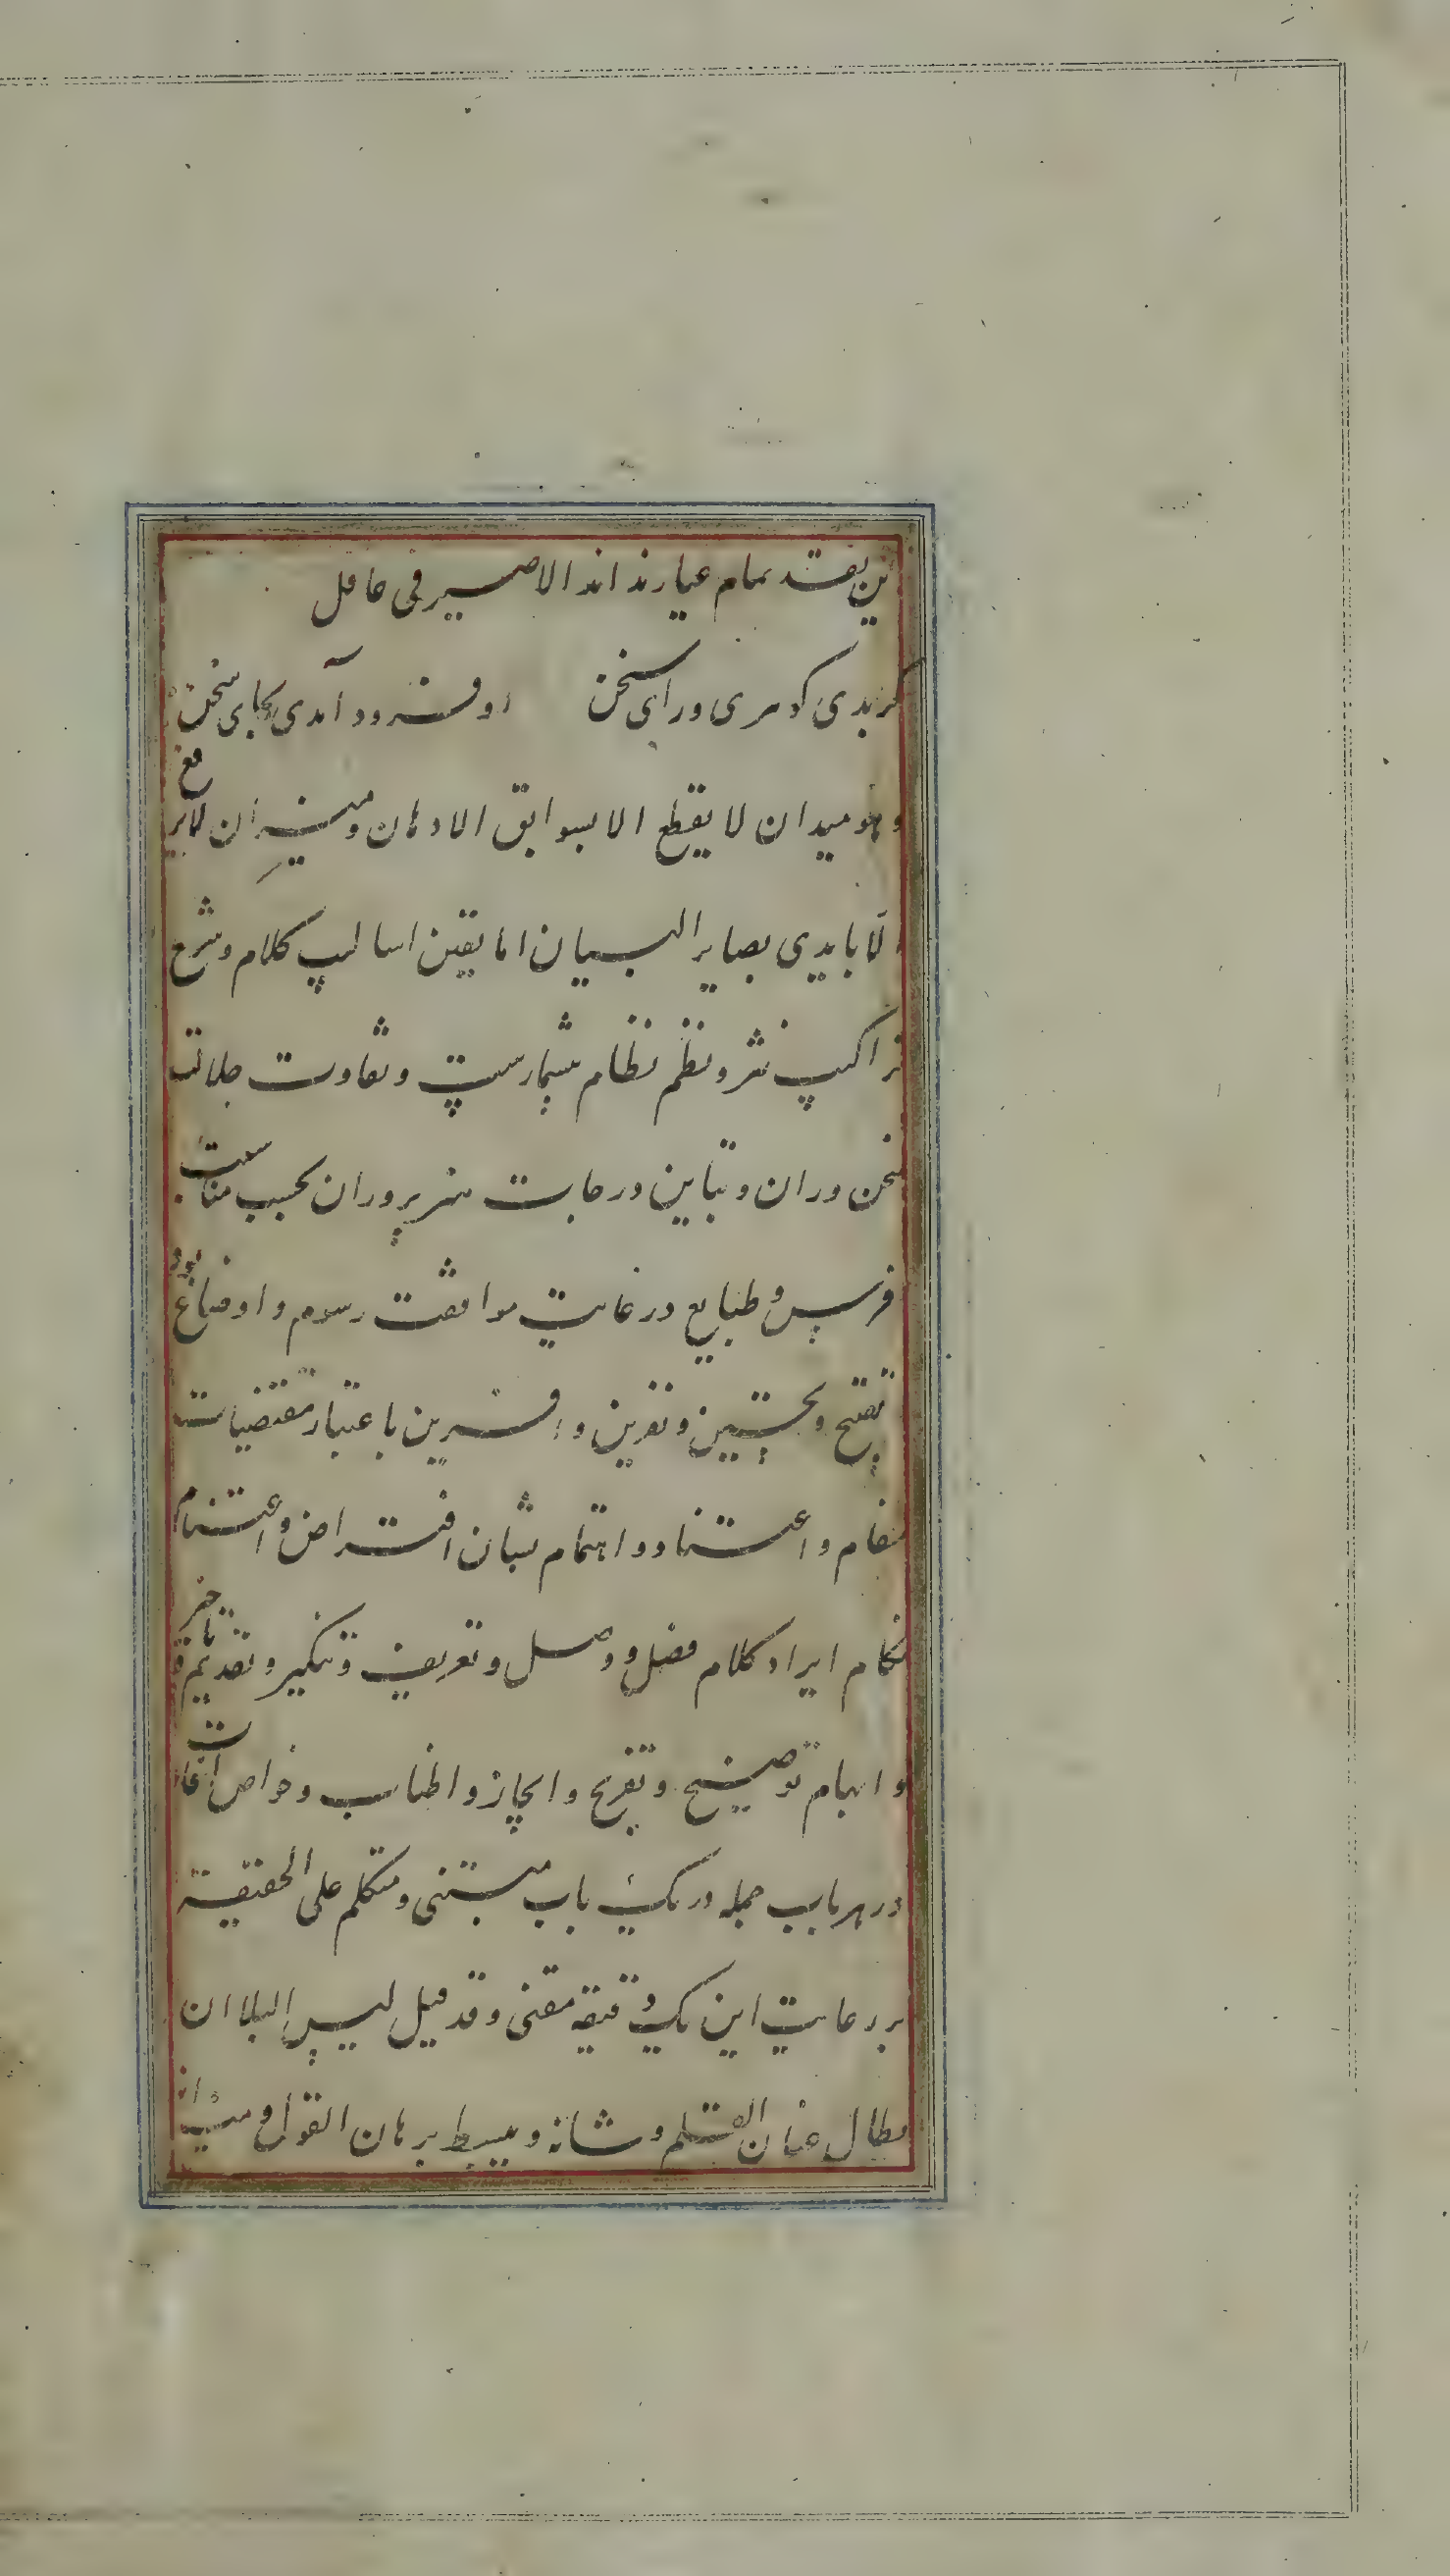 این نقد تمام عیار نداند الا صیرفی عاقل
گر بدی گوهری ورای سخن او فرود آمدی بجای سخن
وهو میدان لا یقطع الا بسوابق الاذهان و میزان لا یرفع
الا بایدی بصایر البیان اما یقین اسالیب کلام و شرع
تراکیب نثر و نظم نظام بیشمارست و تفاوت حالات
سخن وران و تباین درجات هنر پروران بحسب مناسبت
فرس و طبایع در غایت موافقت رسوم و اوضاع بود
تقبیح و تحسین و نفرین و آفرین باعتبار مقتضیات
مقام و اعتناد و اهتمام بشان افتراض و اغتنام
هنگام ایراد کلام فصل و وصل و تعریف و تنکیر و تقدیم و تاخیر
و ابهام توضیح و تفریح و ایجاز و اطناب و خواص
در هر باب جمله در یک باب مبتنی و متکلم علی الحقیقة
بر رعایت این یک دقیقه مقتنی و قد قیل لیس البلا ان
مطال عنان القلم و شانه و یبسط برهان القول و میدانه